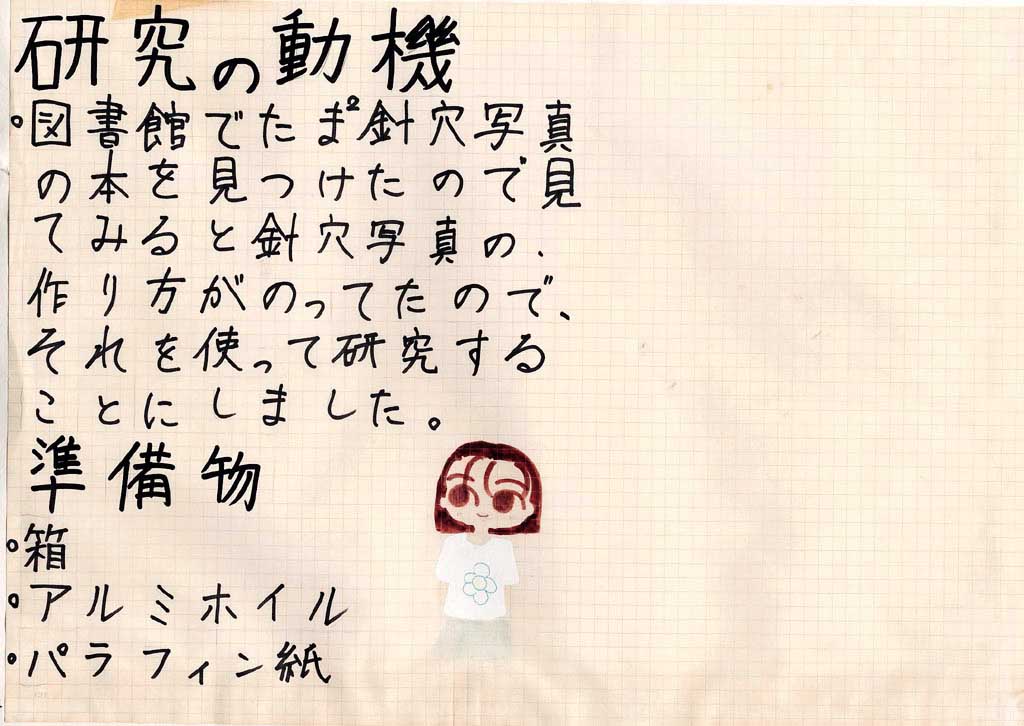 研究の動機
・図書館でたま2針穴写真
の本を見つけたので見
てみると針穴写真の、
作り方がのってたので、
それを使って研究する
ことにしました。
準備物
・箱
・アルミホイル
・パラフィン紙